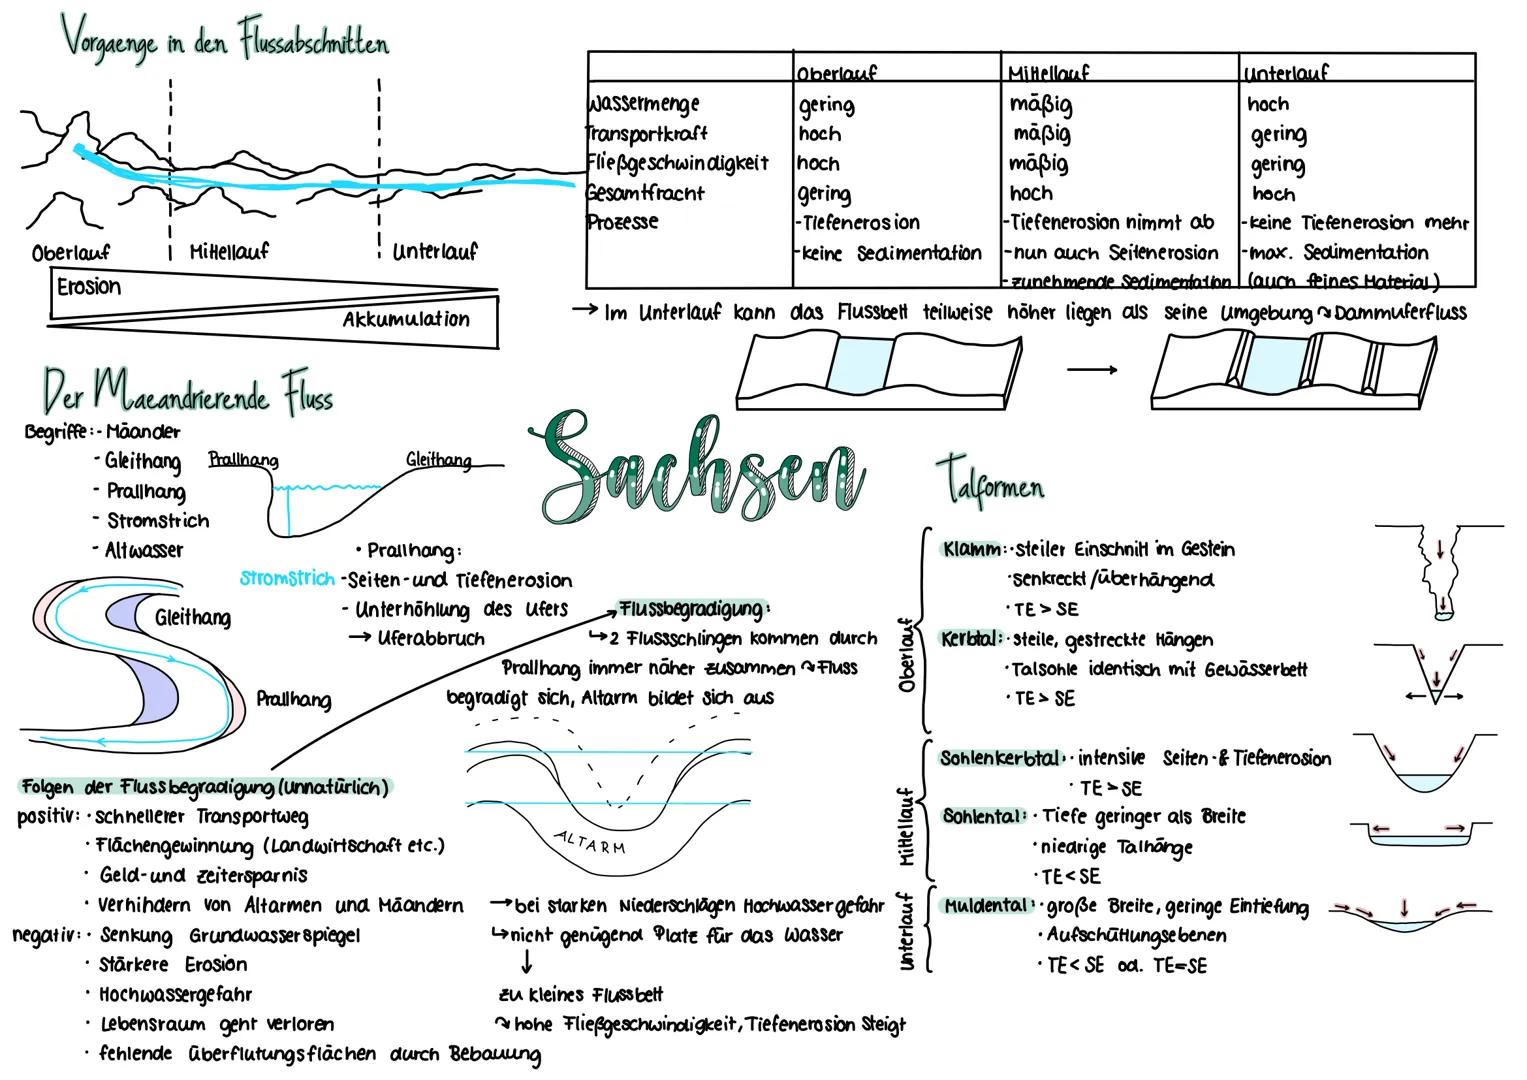 Vorgaenge in den Flussabschnitten
Oberlauf
Mittellauf
Unterlauf
Erosion
Akkumulation
Oberlauf Mittellauf Unterlauf
Wassermenge gering mäßig hoch
Transportkraft hoch mäßig gering
Fließgeschwindigkeit hoch mäßig gering
Gesamtfracht gering hoch hoch
Prozesse -Tiefenerosion -Tiefenerosion nimmt ab -keine Tiefenerosion mehr
-keine Sedimentation -nun auch Seitenerosion -max. Sedimentation
-zunehmende Sedimentation (auch feines Material)
→ Im Unterlauf kann das Flussbett teilweise höher liegen als seine Umgebung ↷ Dammuferfluss
→
Der Maeandrierende Fluss
Begriffe: - Mäander
- Gleithang
- Prallhang
- Stromstrich
- Altwasser
Prallhang
Gleithang
Stromstrich
• Prallhang:
-Seiten- und Tiefenerosion
- Unterhöhlung des Ufers
→ Uferabbruch
Gleithang
Prallhang
Flussbegradigung:
↳ 2 Flussschlingen kommen durch
Prallhang immer näher zusammen ↷ Fluss
begradigt sich, Altarm bildet sich aus
ALTARM
Folgen der Flussbegradigung (Unnatürlich)
positiv: · schnellerer Transportweg
· Flächengewinnung (Landwirtschaft etc.)
· Geld- und Zeitersparnis
· Verhihdern von Altarmen und Mäandern
negativ: · Senkung Grundwasserspiegel
· Stärkere Erosion
· Hochwassergefahr
· Lebensraum geht verloren
· fehlende Überflutungsflächen durch Bebauung
→ bei starken Niederschlägen Hochwassergefahr
↳ nicht genügend Platz für das Wasser
↓
zu kleines Flussbett
↷ hohe Fließgeschwindigkeit, Tiefenerosion steigt
Sachsen
Talformen
Oberlauf
Klamm: · steiler Einschnitt im Gestein
· senkreckt/überhängend
· TE > SE
Kerbtal: · steile, gestreckte Hängen
· Talsohle identisch mit Gewässerbett
· TE > SE
Mittellauf
Sohlenkerbtal: · intensive Seiten- & Tiefenerosion
· TE > SE
Sohlental: · Tiefe geringer als Breite
· niedrige Talhänge
· TE < SE
Unterlauf
Muldental: · große Breite, geringe Eintiefung
· Aufschüttungsebenen
· TE < SE od. TE=SE